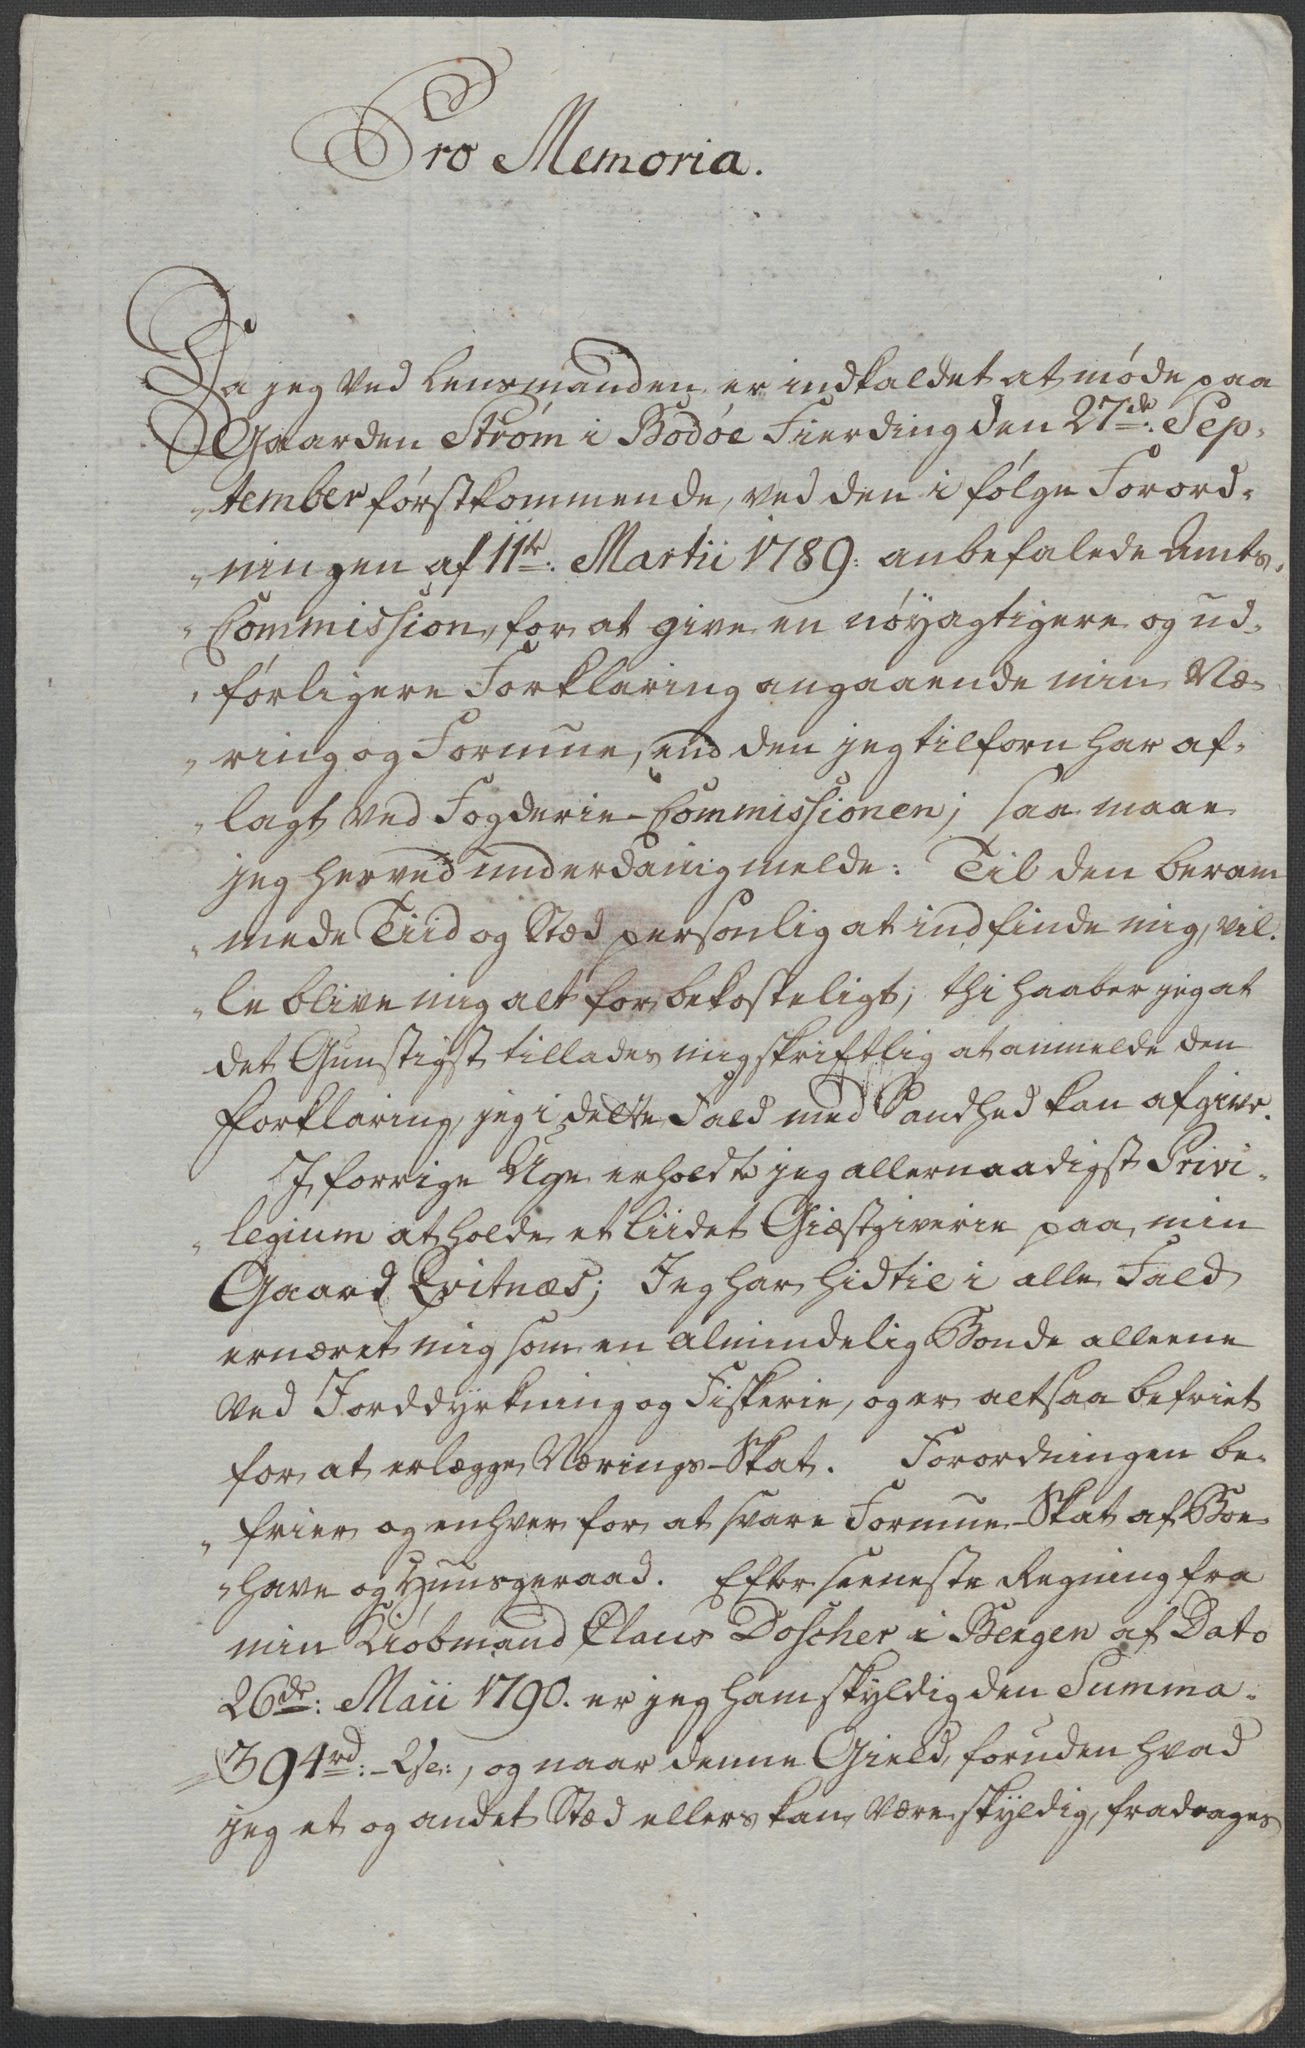 Pro Memoria.
Da jeg ved Lensmanden er indkaldet at møde paa
Gaarden Strøm i Bodøe Fierding den 27de: Sep-
„tember førstkommende, ved den i følge Forord-
„ningen af 11te: Martii 1789: anbefalede Amts-
„Commission, for at give en nøyagtigere og ud-
„førligere Forklaring angaaende min Næ-
„ring og Formue, end den jeg tilforn har af-
„lagt ved Fogderie-Commissionen; saa maae
jeg herved underdanig melde: Til den beram
„mede Tiid og Stæd personlig at indfinde mig, vil-
„le blive mig alt for bekosteligt; thi haaber jeg at
det Gunstigst tillades mig skriftlig at anmelde den
Forklaring, jeg i dette Fald med Sandhed kan afgive.
I forrige Uge erholdte jeg allernaadigst Privi-
„legium at holde et liidet Giæstgiverie paa min
Gaard Qvitnæs; Jeg har hidtil i alle Fald
ernæret mig som en almindelig Bonde alleene
ved Jorddyrkning og Fiskerie, og er altsaa befriet
for at erlægge Nærings-Skat. Forordningen be-
„frier og enhver for at svare Formue-Skat af Boe
„have og Huusgeraad. Efter seeneste Regning fra
min Kiøbmand Claus Doscher i Bergen af Dato
26de: Maii 1790. er jeg ham skyldig den Summa-
394rd: - 2se:, og naar denne Gield, foruden hvad
jeg et og andet Stæd ellers kan være skyldig, fradrages